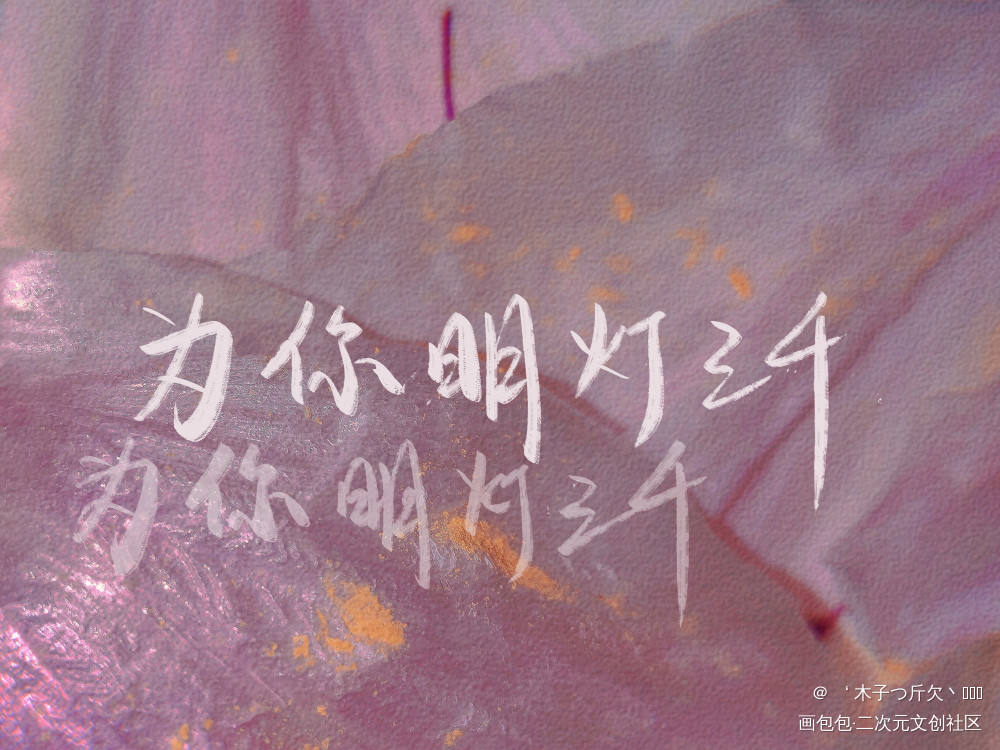 为你明灯三千
为你明灯三千
@ ‘木子つ斤欠丶
画包包·二次元文创社区